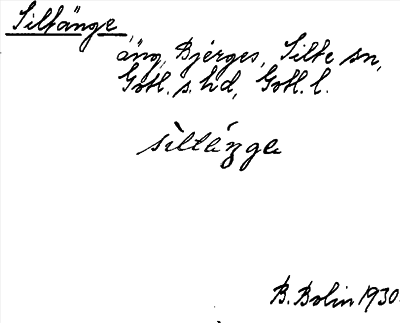 Siltänge,
äng, Bjerges, Silte sn,
Gotl. s. hd, Gotl. l.
sìltä́nga
B. Bolin 1930.